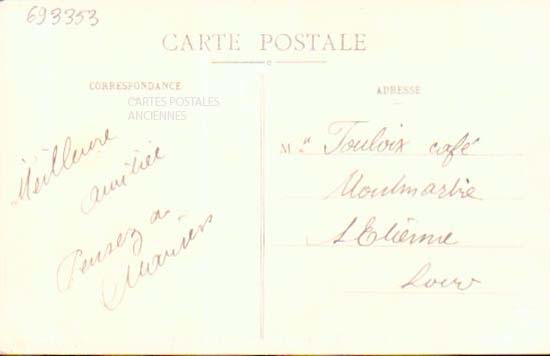 693353
CARTE POSTALE
CORRESPONDANCE
CARTES POSTALES
ANCIENNES
Meilleure
amitiée
Pensez a
ADRESSE
M Touloix café
Montmartre
St Etienne
Loire